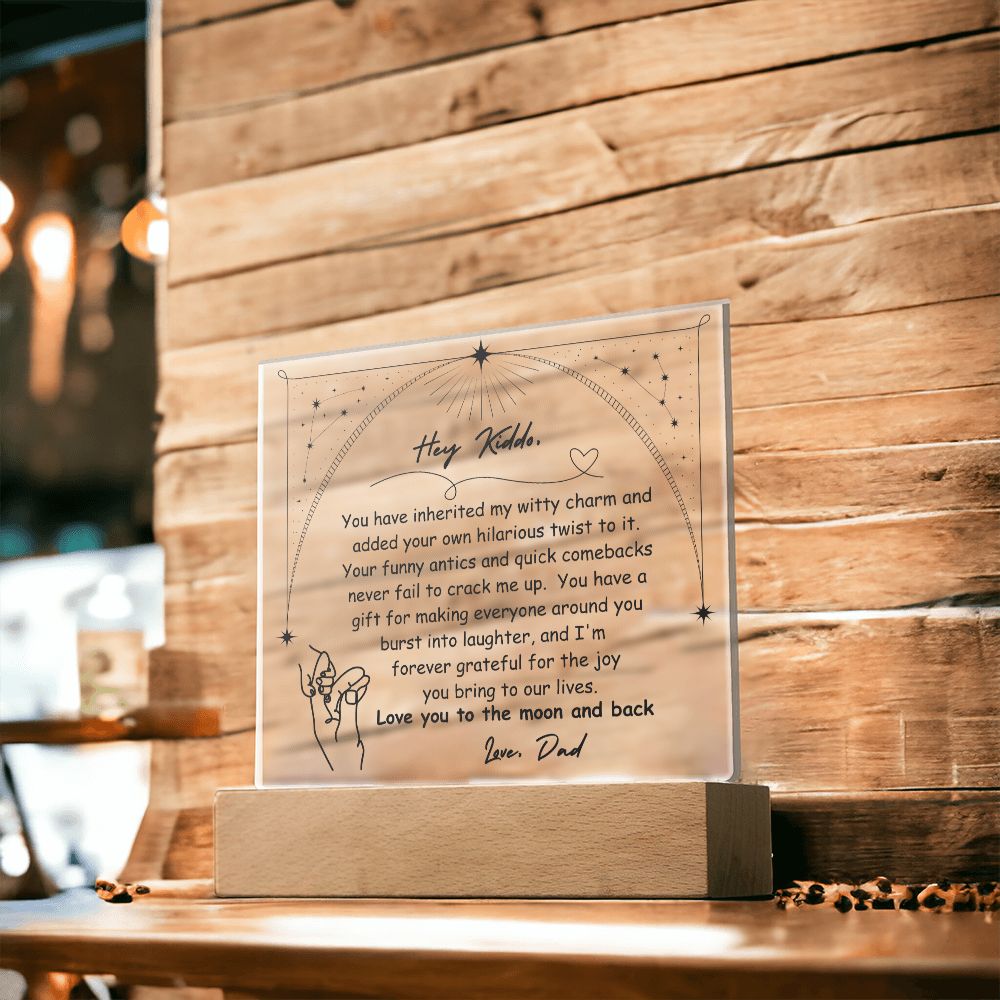 Hey Kiddo,
You have inherited my witty charm and
added your own hilarious twist to it.
Your funny antics and quick comebacks
never fail to crack me up.  You have a
gift for making everyone around you
burst into laughter, and I'm
forever grateful for the joy
you bring to our lives.
Love you to the moon and back
Love, Dad